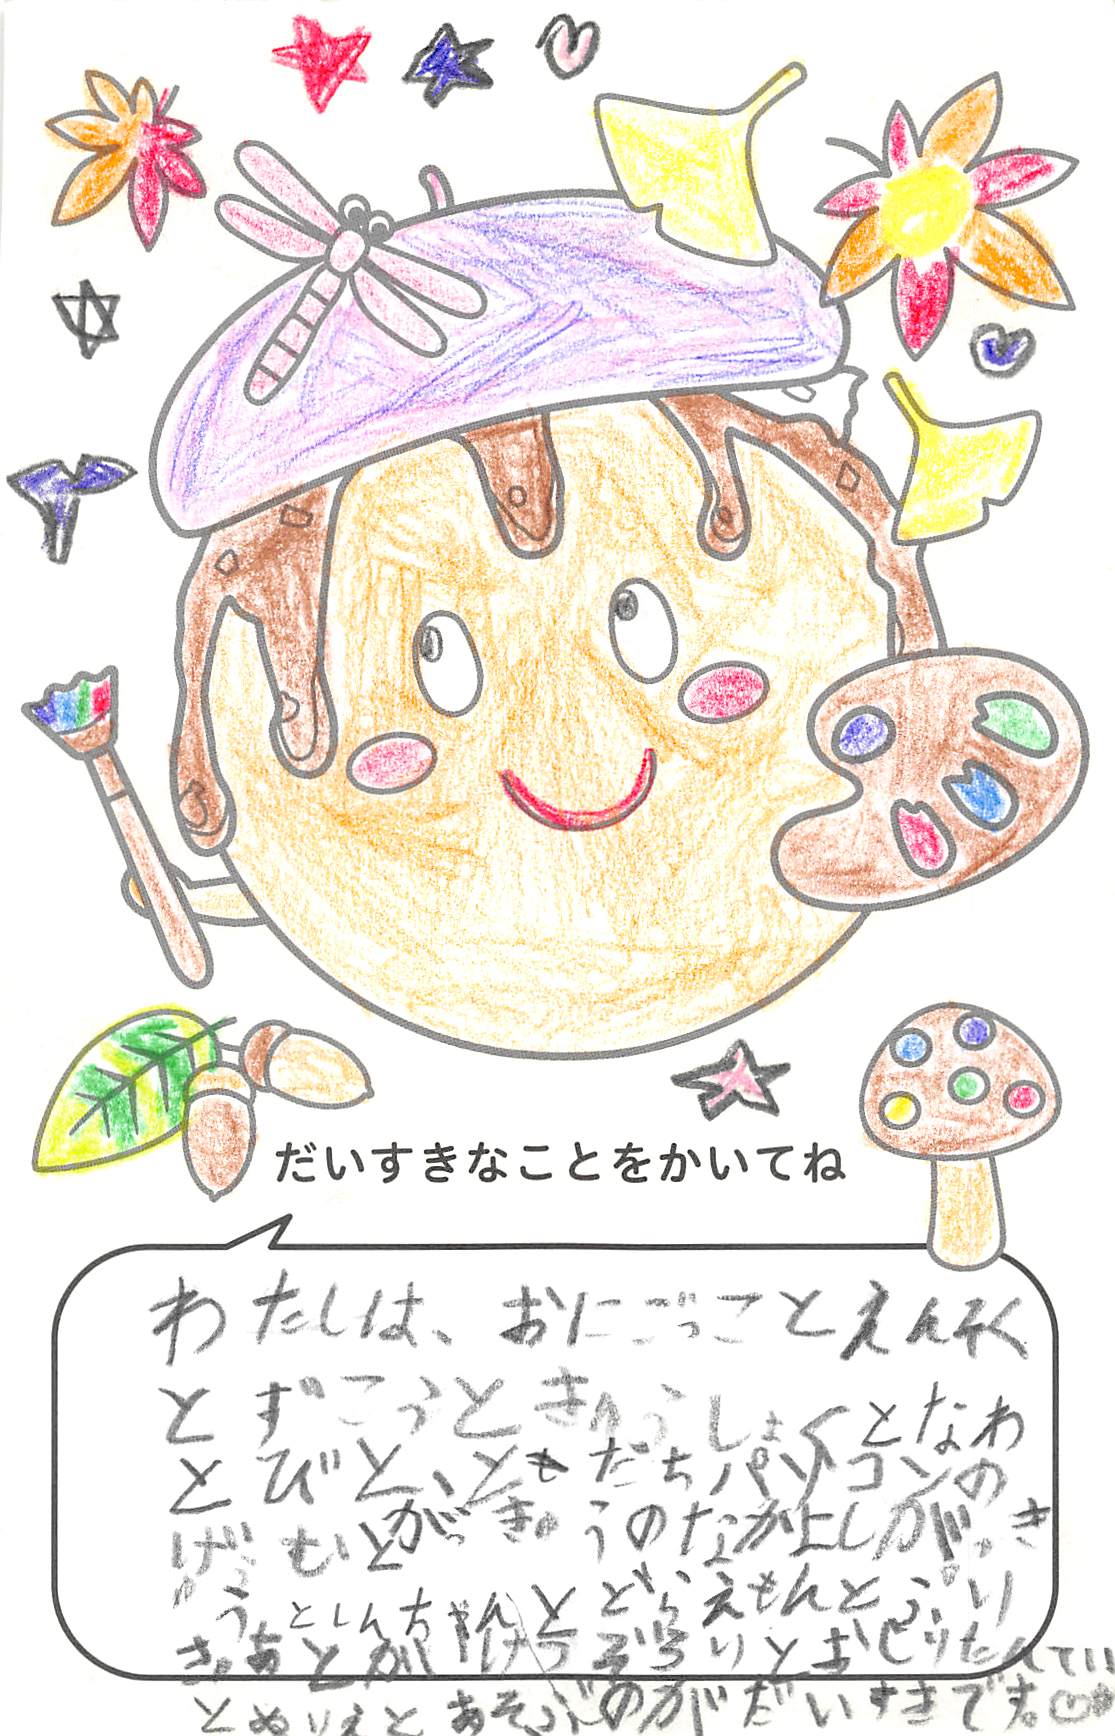 だいすきなことをかいてね
わたしは、おにごっことえんそく
とずこうときゅうしょくとなわ
とびと、ともだちパソコンの
げえむとがっきゅうのなかよしがっき
ゅうと しんちゃんとどらえもんとぷり
きゅあとが
とぬりえとあそぶのがだいすきです。